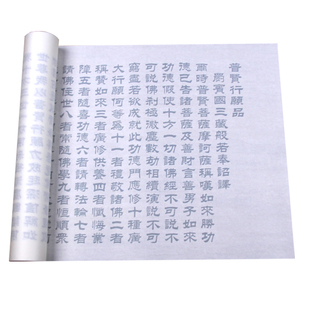 普賢行願品
罽賓國三藏般若奉詔譯
爾時普賢菩薩摩訶薩稱歎如來勝功
德已告諸菩薩及善財言善男子如來
功德假使十方一切諸佛經不可說不
可說佛剎極微塵數劫相續演說不可
窮盡若欲成就此功德門應修十種廣
大行願何等爲十一者禮敬諸佛二者
稱贊如來三者廣修供養四者懺悔業
障五者隨喜功德六者請轉法輪七者
請佛住世八者常隨佛學九者恒順衆